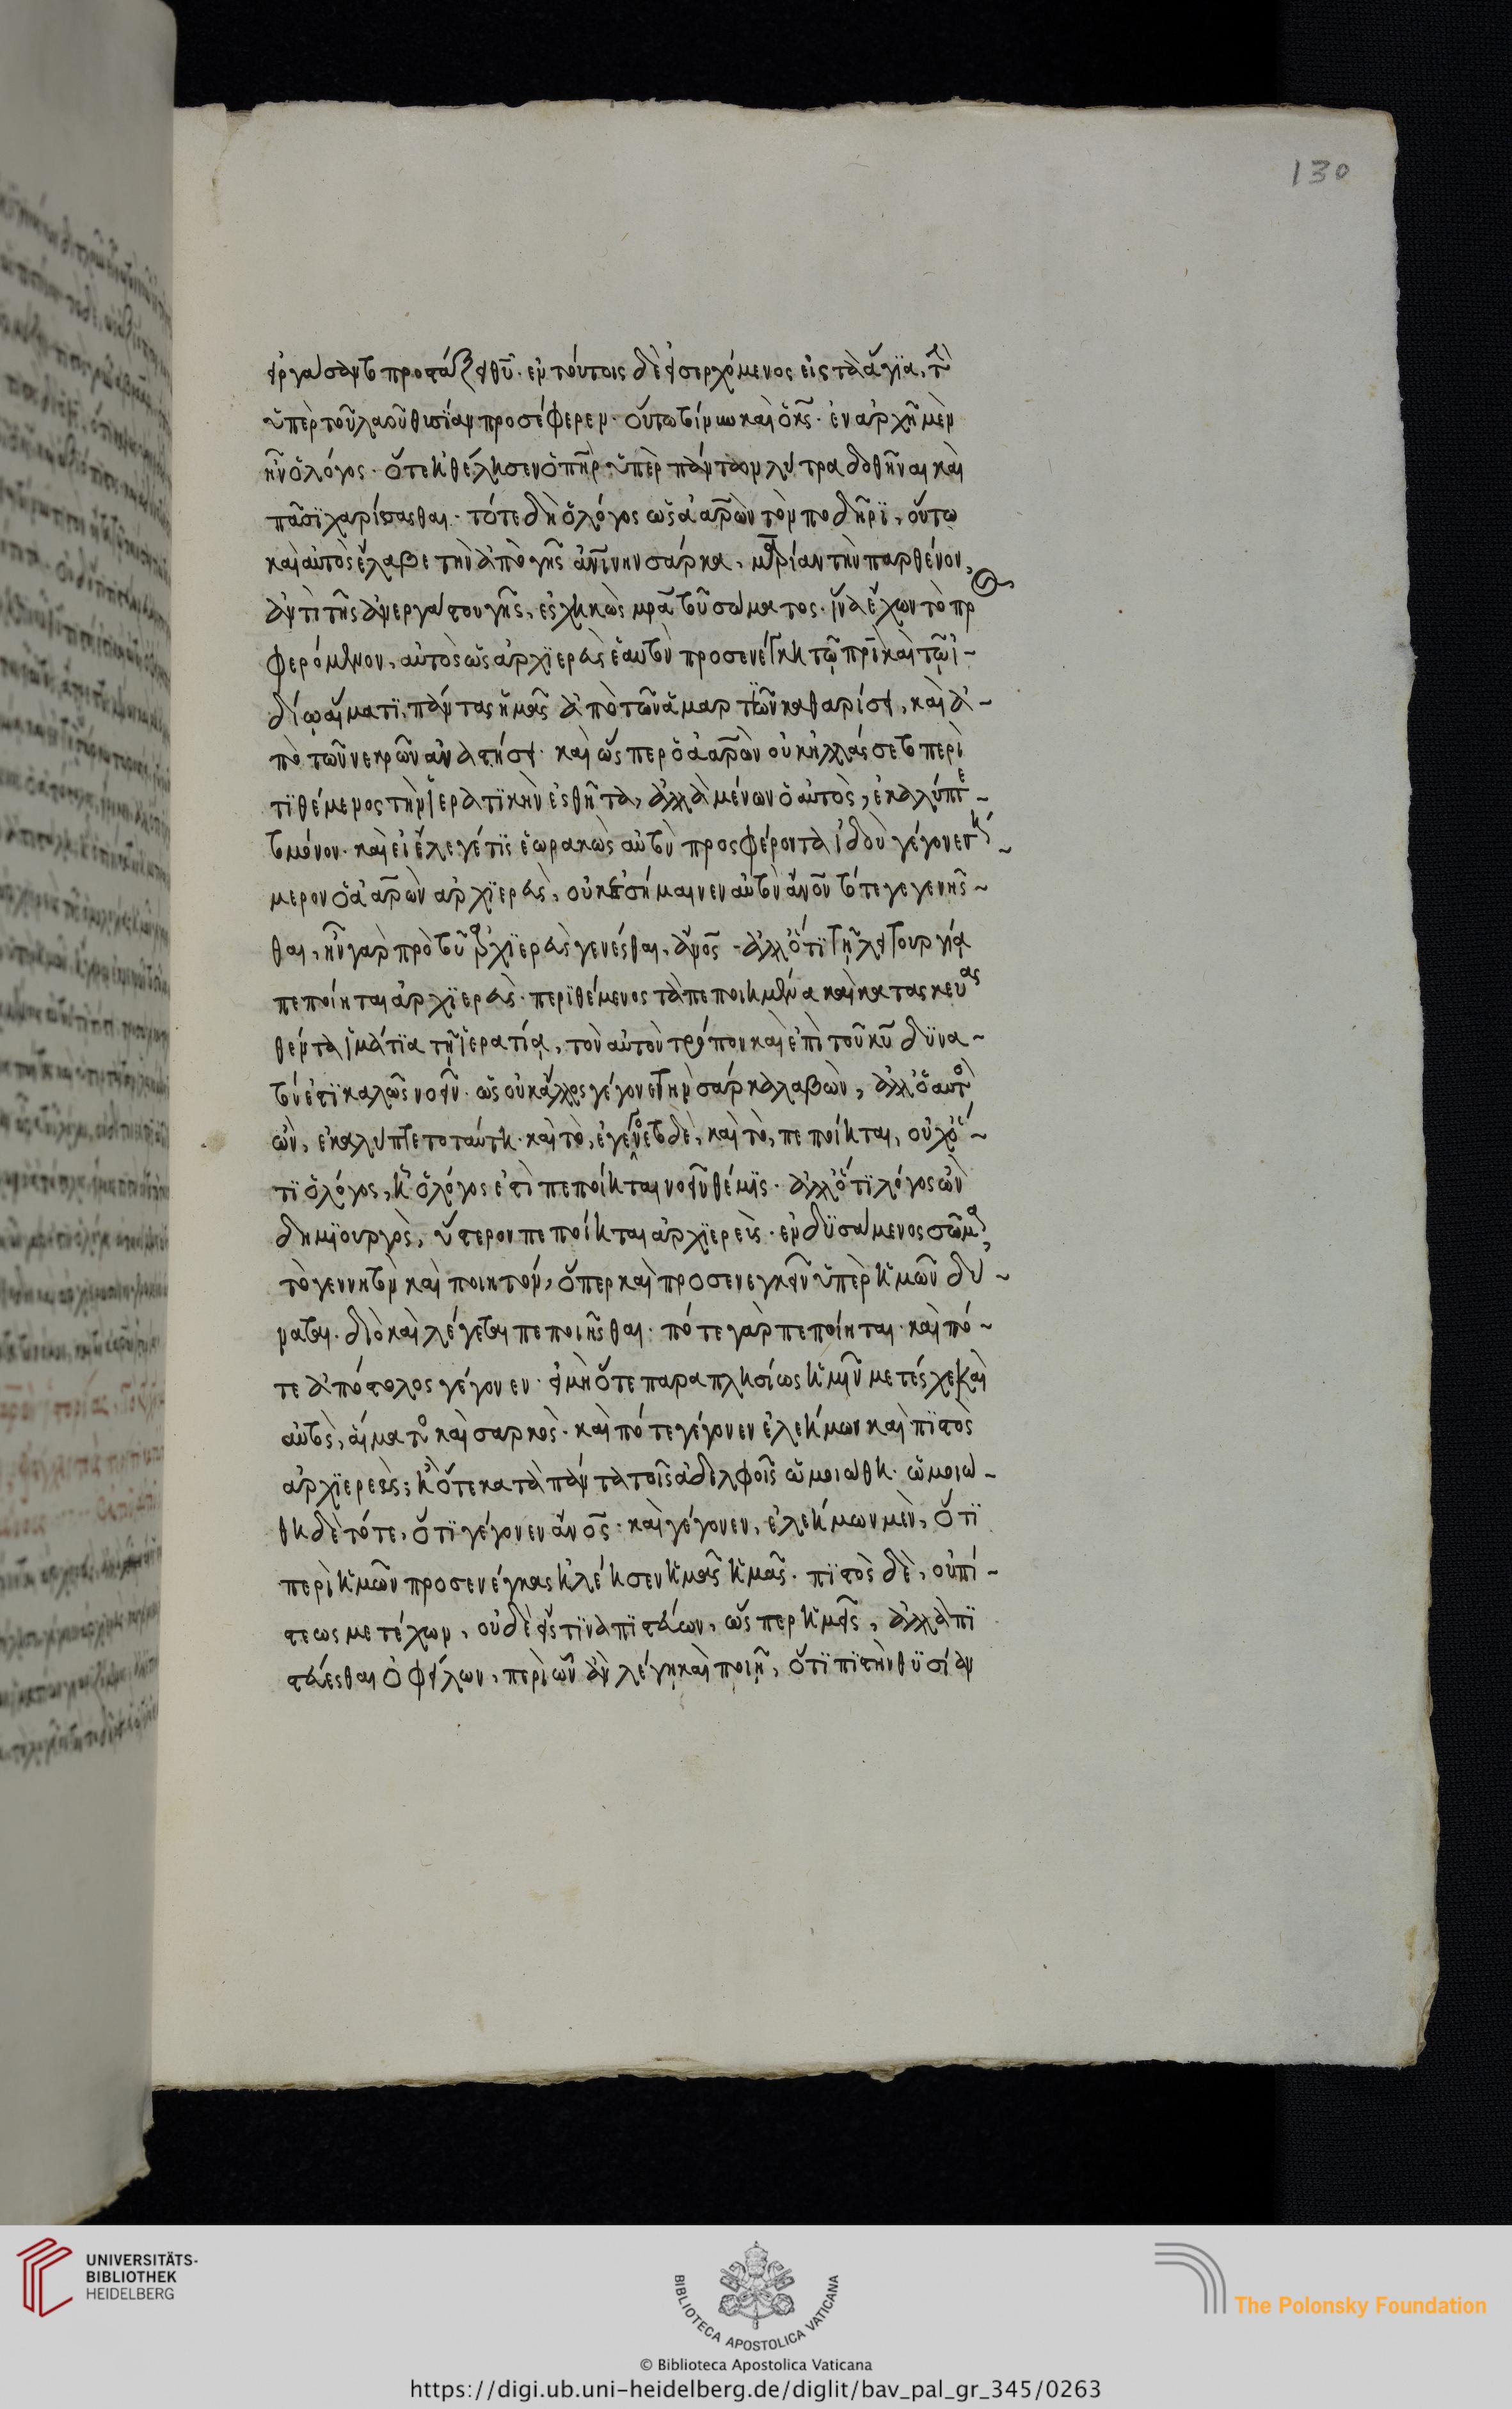 130
εἰργάσαντο προστάξει θυ̅· ἐν τούτοις δὲ εἰσερχόμενος εἰς τὰ ἅγϊα, τὴν
ὑπὲρ τοῦ λαοῦ θυσίαν προσέφερεν· οὕτω τίνυν καὶ ὁ κς̅· ἐν ἀρχῆ μὲν
ἦν ὁ λόγος· ὅτε ἠθέλησεν ὁ πηρ̅ ὑπὲρ πάντων λύτρα δοθῆναι καὶ
πᾶσϊ χαρίσασθαι· τότε δὴ ὁ λόγος ὡς ἀαρὼν τὸν ποδήρϊ, οὕτω
καὶ αὐτὸς ἔλαβε τὴν ἀπὸ γῆς ἀνι̅νην σάρκα, μαρίαν τὴν παρθένον,
ἀντὶ τῆς ἀνεργάστου γῆς, ἐσχηκὼς μρα̅ τοῦ σώματος· ἵνα ἔχων τὸ πρ
φερόμενον, αὐτὸς ὡς ἀρχϊερεὺς ἑαυτὸν προσενέγκη τῶ πρι̅ καὶ τῶ ἰ-
δίω αἵματϊ, πάντας ἡμᾶς ἀπὸ τῶν ἁμαρτϊῶν καθαρίση, καὶ ἀ-
πὸ τῶν νεκρῶν ἀναστήση· καὶ ὥσπερ ὁ ἀαρὼν οὐκ ἠλλάσσετο περὶ
τϊθέμενος τὴν ἱερατϊκὴν ἐσθῆτα, ἀλλὰ μένων ὁ αὐτὸς, ἐκαλύπτε-
το μόνον· καὶ εἰ ἔλεγέ τϊς ἑωρακὼς αὐτὸν προσφέροντα ἰδοὺ γέγονε σή-
μερον ὁ ἀαρὼν ἀρχϊερεὺς, οὐκ ἐσήμαινεν αὐτὸν ἄνον̅ τότε γεγενῆσ-
θαι, ἦν γὰρ πρὸ τοῦ ἀρχϊερεὺς γενέσθαι, ἄνος̅· ἀλλ' ὅτϊ τῆ λειτουργία
πεποίηται ἀρχϊερεὺς· περϊθέμενος τὰ πεποιημένα καὶ κατασκευασ
θέντα ἱμάτϊα τῆ ἱερατία, τὸν αὐτὸν τρόπον καὶ ἐπὶ τοῦ κυ̅ δϋνα-
τόν ἐστϊ καλῶς νοεῖν· ὡς οὐκ ἄλλος γέγονε τὴν σάρκα λαβὼν, ἀλλ' ὁ αὐτὸς
ὢν, ἐκαλύπτετο ταύτη· καὶ τὸ, ἐγένετο δὲ, καὶ τὸ, πεποίηται, οὐχ ὅ-
τϊ ὁ λόγος, ἧ ὁ λόγος ἐστὶ πεποίηται νοεῖν θέμϊς· ἀλλ' ὅτϊ λόγος ὢν
δημϊουργὸς, ὕστερον πεποίηται ἀρχϊερεὺς· ἐνδϋσάμενος σῶμα,
τὸ γεννητὸν καὶ ποιητόν, ὅπερ καὶ προσενεγκεῖν ὑπὲρ ἡμῶν δύ-
ναται· διὸ καὶ λέγεται πεποιῆσθαι· πότε γὰρ πεποίηται· καὶ πό-
τε ἀπόστολος γέγονεν· εἰ μὴ ὅτε παραπλησίως ἡμῖν μετέσχε καὶ
αὐτὸς, αἵματος καὶ σαρκὸς· καὶ πότε γέγονεν ἐλεήμων καὶ πϊστὸς
ἀρχϊερεὺς; ἢ ὅτε κατὰ πάντα τοῖς ἀδελφοῖς ὡμοιώθη· ὡμοιώ-
θη δὲ τότε, ὅτϊ γέγονεν ἄνος̅· καὶ γέγονεν, ἐλεήμων μὲν, ὅτϊ
περὶ ἡμῶν προσενέγκας ἠλέησεν ἡμᾶς ἡμᾶς· πϊστὸς δὲ, οὐ πί-
στεως μετέχων, οὐδὲ εἴς τϊνα πϊστεύων, ὥσπερ ἡμεῖς, ἀλλὰ πϊ
στεύεσθαι ὀφείλων, περὶ ὧν ἂν λέγη καὶ ποιῆ, ὅτϊ πϊστὴν θϋσίαν
UNIVERSITÄTS-
BIBLIOTHEK
HEIDELBERG
BIBLIOTECA APOSTOLICA VATICANA
The Polonsky Foundation
© Biblioteca Apostolica Vaticana
https://digi.ub.uni-heidelberg.de/diglit/bav_pal_gr_345/0263